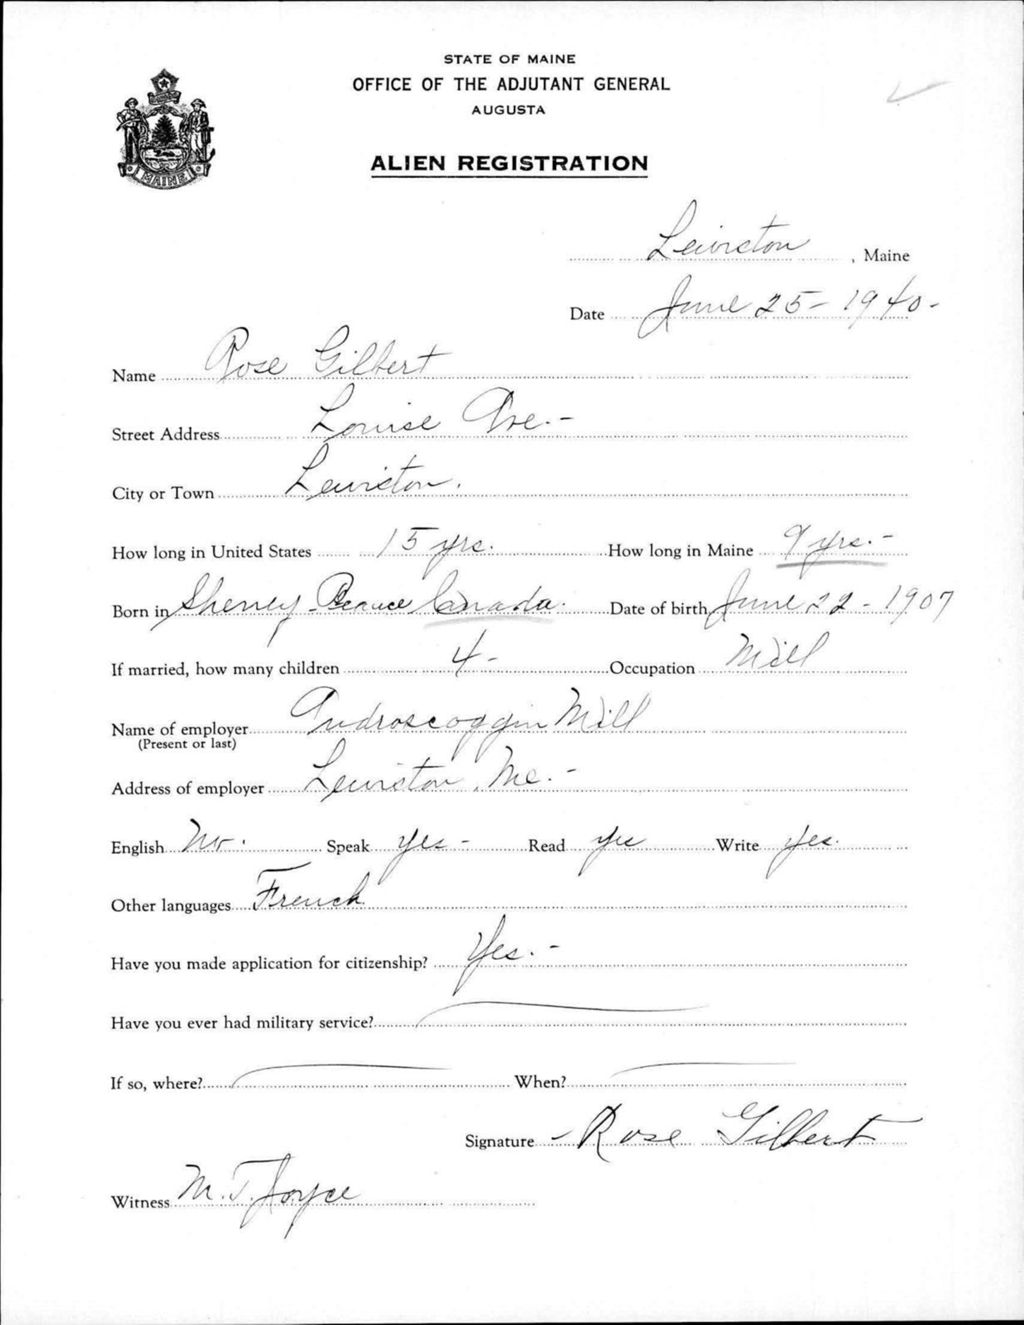 STATE OF MAINE
OFFICE OF THE ADJUTANT GENERAL
AUGUSTA
ALIEN REGISTRATION
MAINE
Lewiston, Maine
Date June 25 - 1940 -
Name Rose Gilbert
Street Address Louise Ave. -
City or Town Lewiston.
How long in United States 15 yrs. How long in Maine 9 yrs. -
Born in Sherney - Beauce Canada. Date of birth June 22 - 1907
If married, how many children 4 - Occupation Mill
Name of employer Androscoggin Mill
(Present or last)
Address of employer Lewiston, Me. -
English Speak yes - Read yes Write yes.
Other languages French
Have you made application for citizenship? Yes. -
Have you ever had military service?
If so, where? When?
Signature - Rose Gilbert
Witness M. T. Joyce